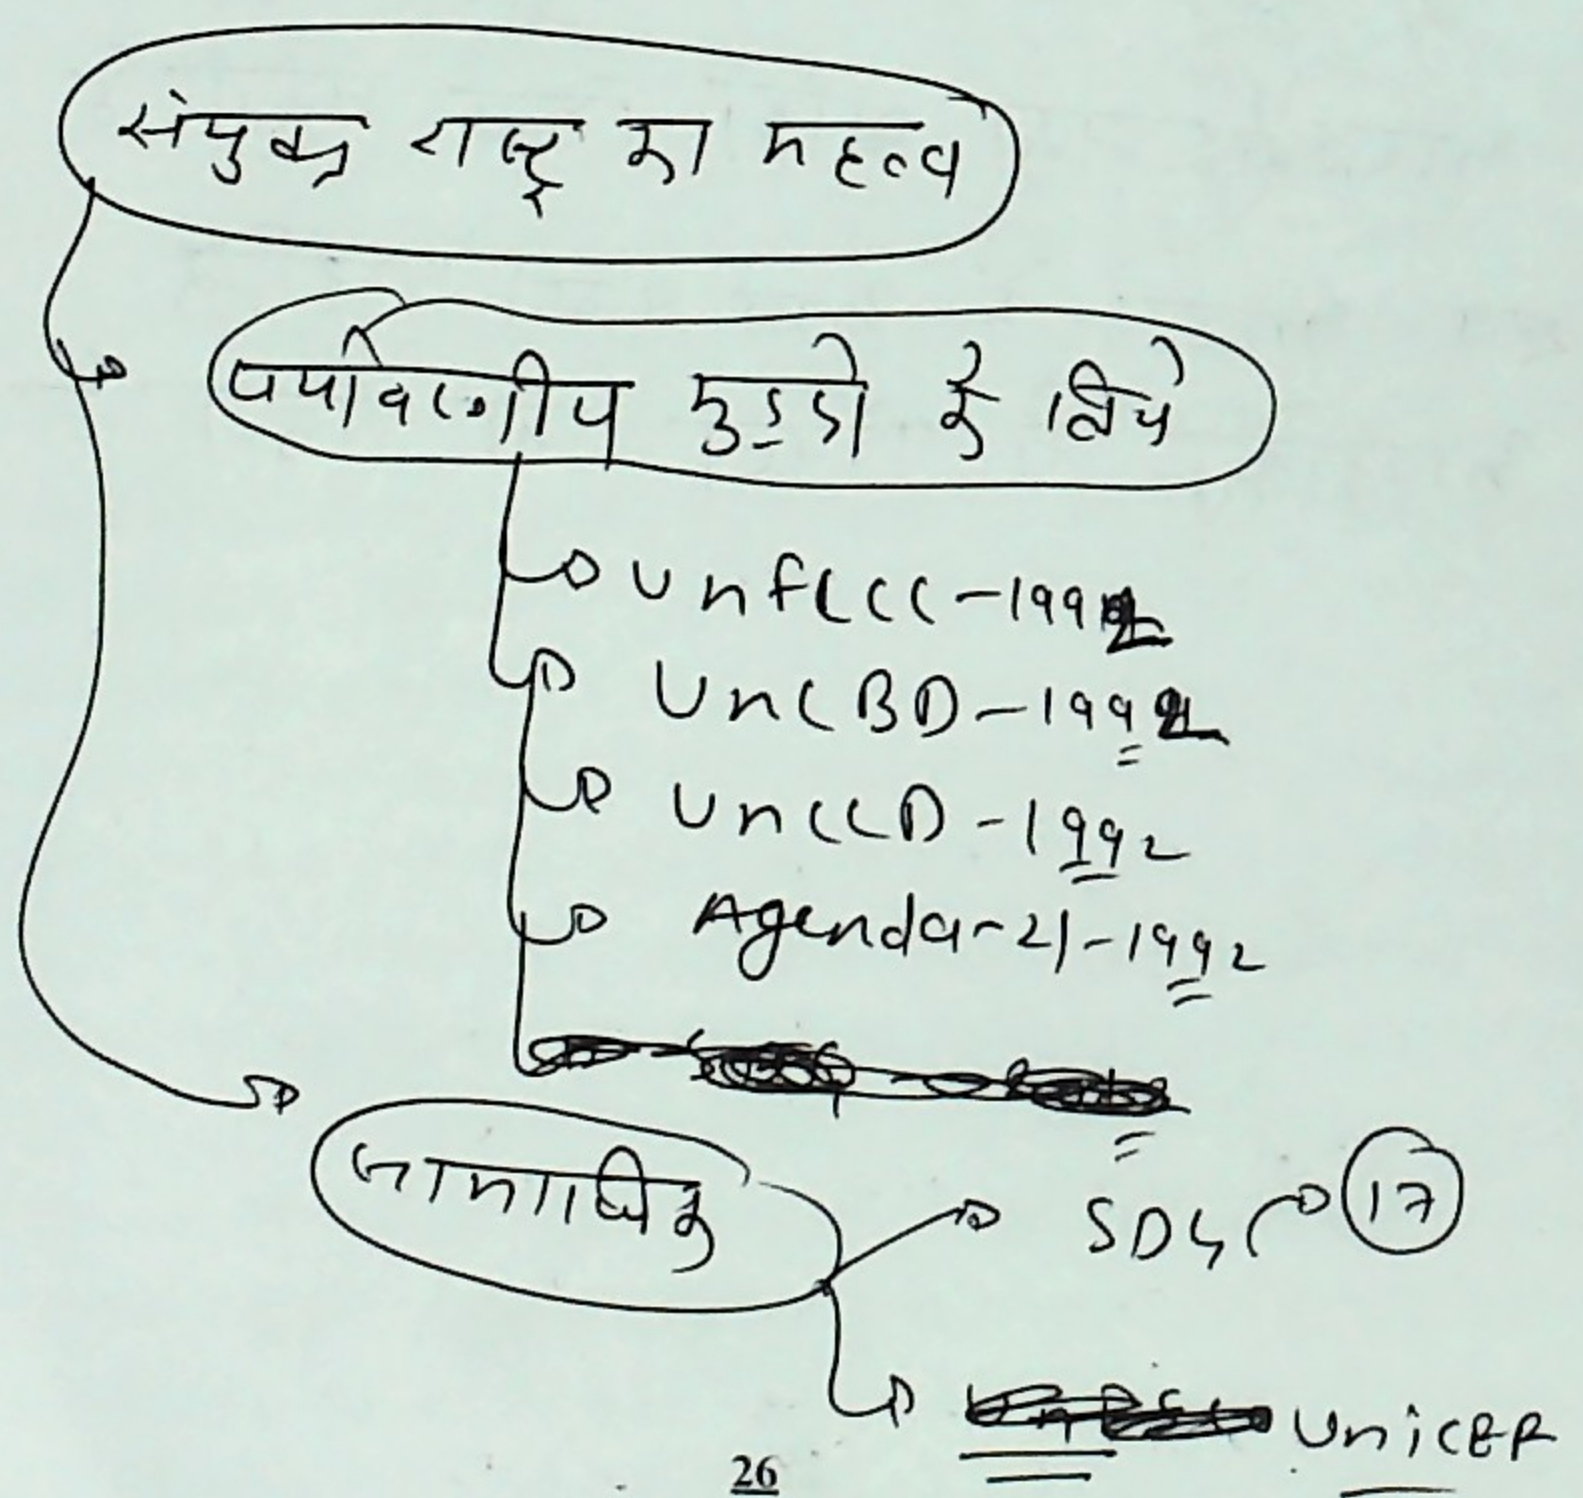 संयुक्त राष्ट्र का महत्व
पर्यावरणीय मुद्दों के लिये
UNFCCC - 1992
UNCBD - 1992
UNCCD - 1992
Agenda - 21 - 1992
सामाजिक
SDG 17
UNICEF
26